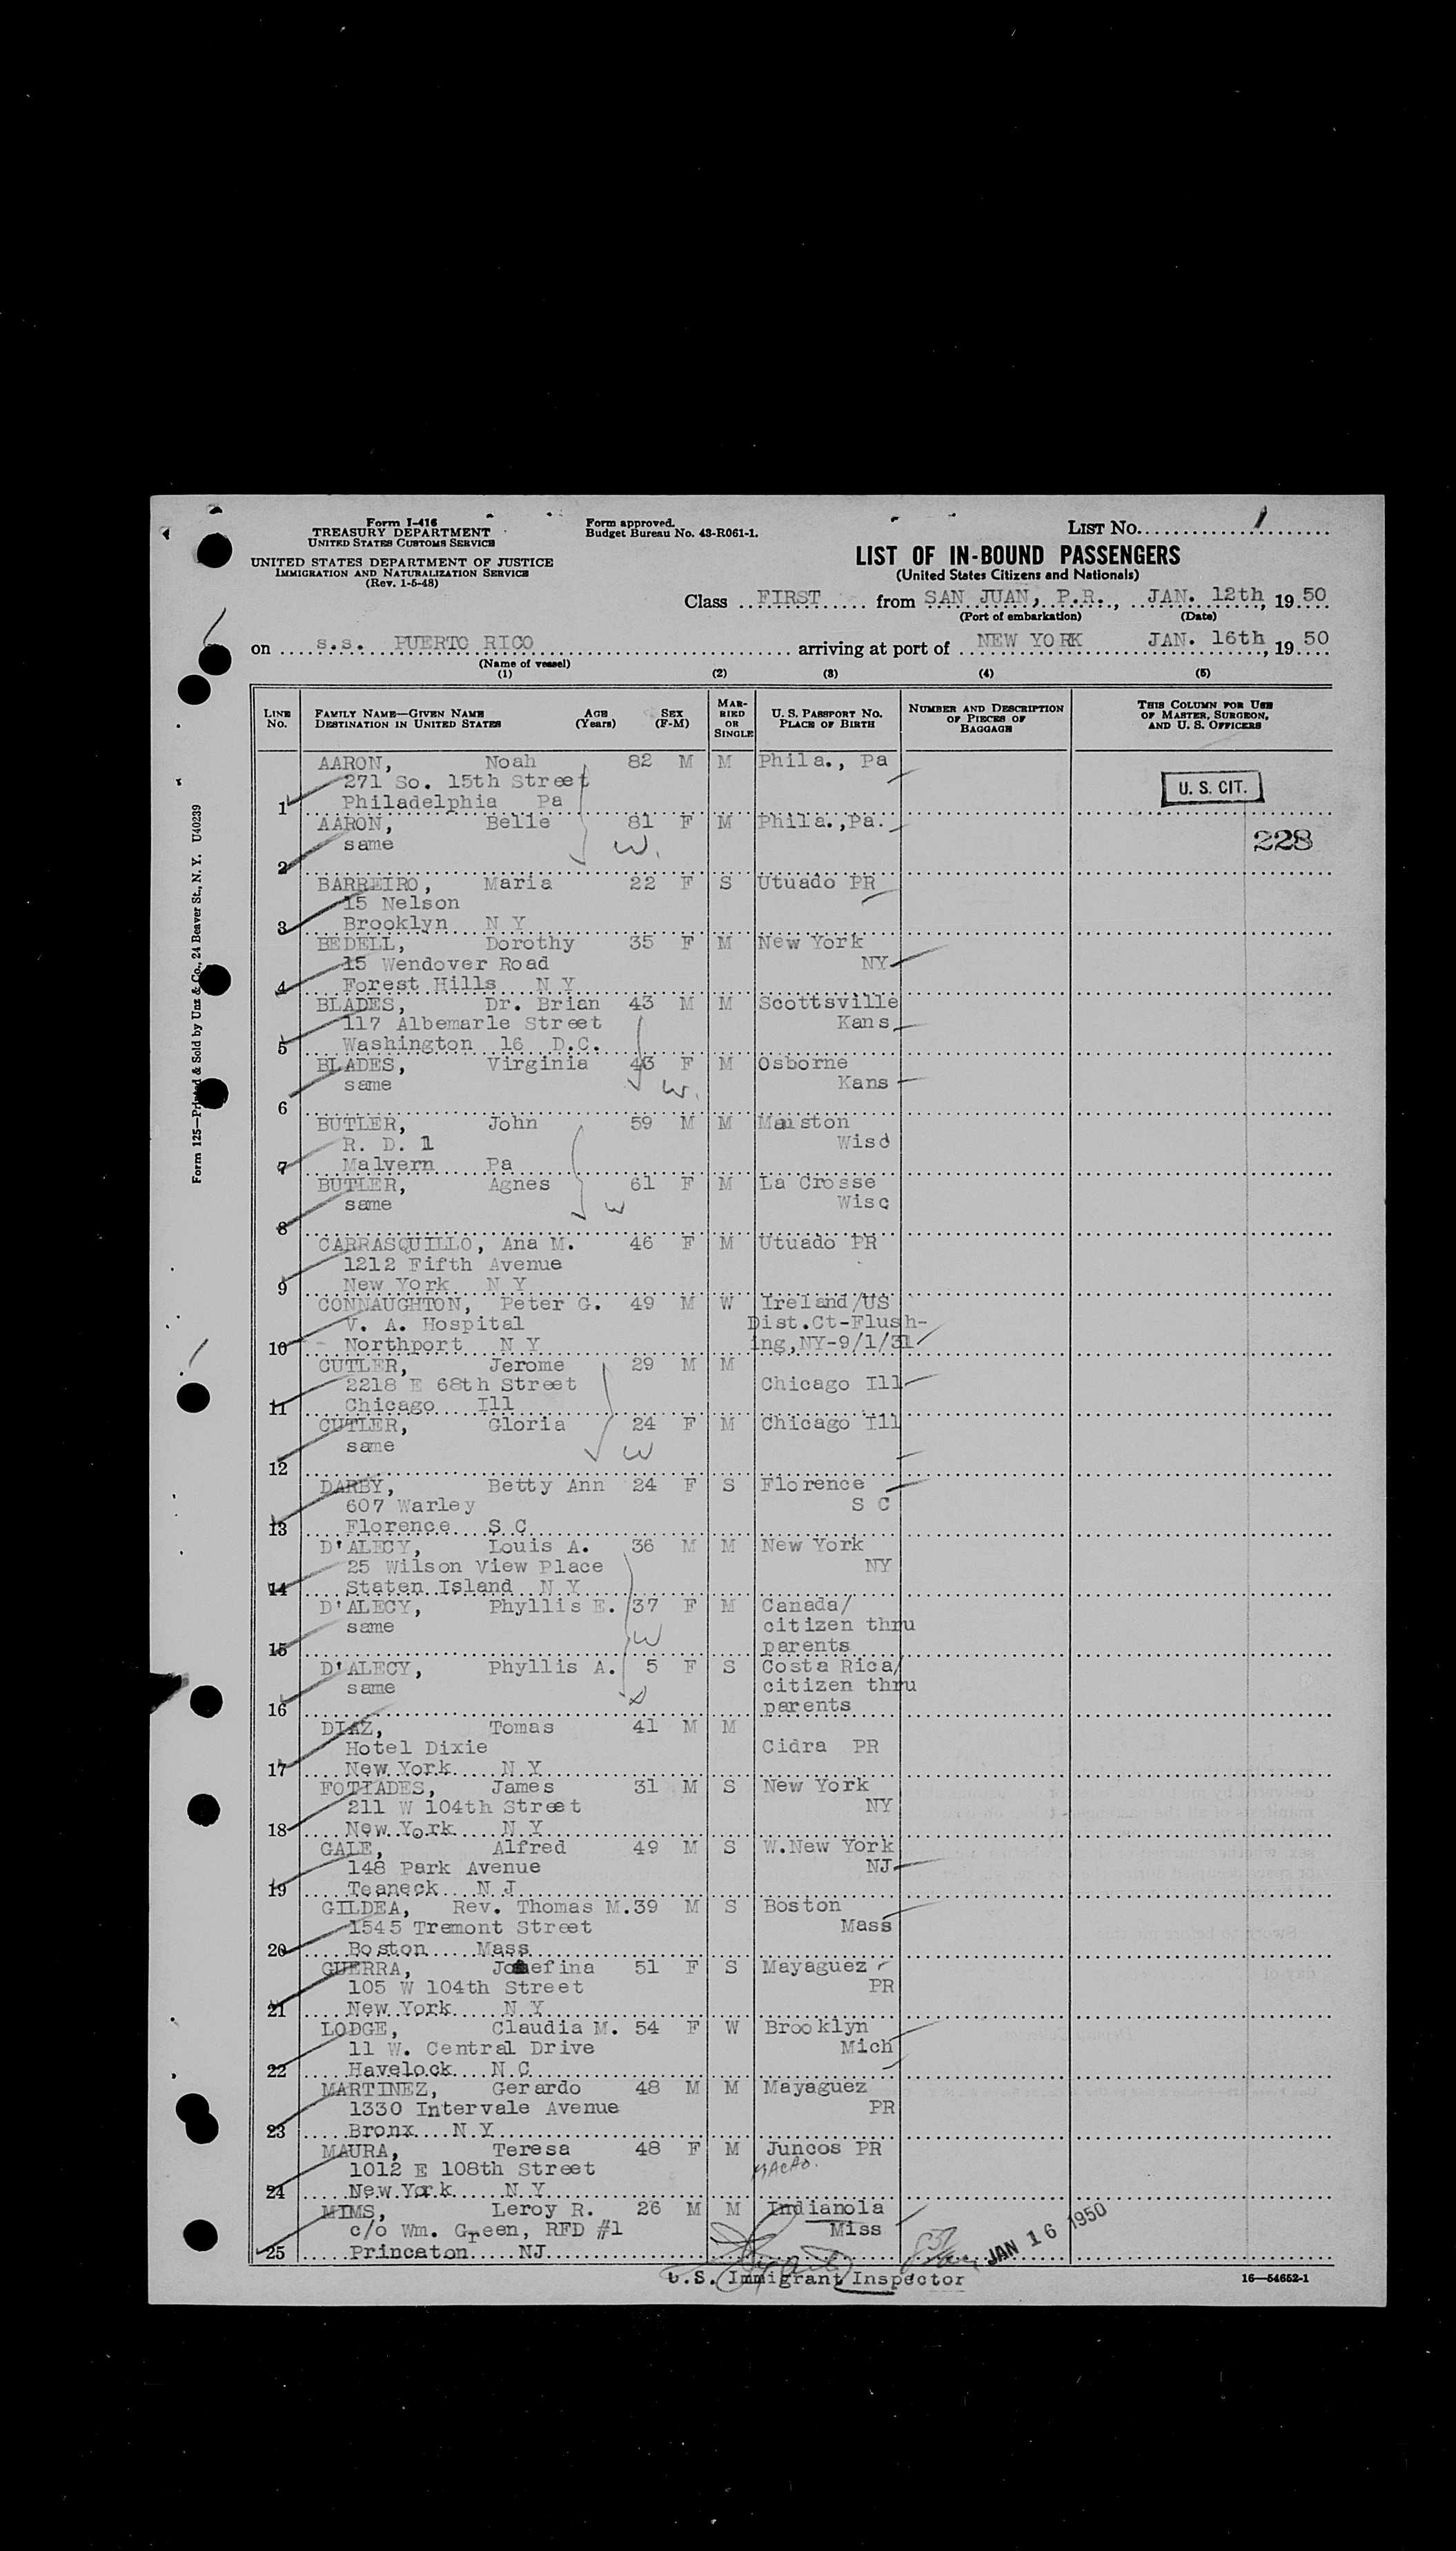 Form I-416
TREASURY DEPARTMENT
UNITED STATES CUSTOMS SERVICE
UNITED STATES DEPARTMENT OF JUSTICE
IMMIGRATION AND NATURALIZATION SERVICE
(Rev. 1-5-48)
Form approved.
Budget Bureau No. 43-R061-1.
LIST NO. 1
LIST OF IN-BOUND PASSENGERS
(United States Citizens and Nationals)
Class FIRST from SAN JUAN, P.R., JAN. 12th, 19 50
(Port of embarkation) (Date)
on s.s. PUERTO RICO arriving at port of NEW YORK JAN. 16th, 19 50
(Name of vessel)
(1) (2) (3) (4) (5)
LINE NO.
FAMILY NAME—GIVEN NAME
DESTINATION IN UNITED STATES
AGE (Years)
SEX (F-M)
MARRIED OR SINGLE
U. S. PASSPORT NO.
PLACE OF BIRTH
NUMBER AND DESCRIPTION OF PIECES OF BAGGAGE
THIS COLUMN FOR USE OF MASTER, SURGEON, AND U. S. OFFICERS
AARON, Noah 82 M M Phila., Pa
271 So. 15th Street
U. S. CIT.
1 Philadelphia Pa
AARON, Belle 81 F M Phila.,Pa.
same W. 228
2
BARREIRO, Maria 22 F S Utuado PR
15 Nelson
3 Brooklyn N Y
BEDELL, Dorothy 35 F M New York
15 Wendover Road NY
4 Forest Hills N Y
BLADES, Dr. Brian 43 M M Scottsville
117 Albemarle Street Kans
5 Washington 16 D.C.
BLADES, Virginia 43 F M Osborne
same W. Kans
6
BUTLER, John 59 M M Marston
R. D. 1
7 Malvern Pa
BUTLER, Agnes 61 F M La Crosse
same W Wisc
8
CARRASQUILLO, Ana M. 46 F M Utuado PR
1212 Fifth Avenue
9 New York N Y
CONNAUGHTON, Peter G. 49 M W Ireland/US
V. A. Hospital Dist.Ct-Flush-
10 Northport N Y ing,NY-9/1/31
CUTLER, Jerome 29 M M
2218 E 68th Street Chicago Ill
11 Chicago Ill
CUTLER, Gloria 24 F M Chicago Ill
same W
12
DARBY, Betty Ann 24 F S Florence
607 Warley S C
13 Florence S C
D'ALECY, Louis A. 36 M M New York
25 Wilson View Place NY
14 Staten Island N Y
D'ALECY, Phyllis E. 37 F M Canada/
same W citizen thru
15 parents
D'ALECY, Phyllis A. 5 F S Costa Rica/
same citizen thru
16 parents
DIAZ, Tomas 41 M M
Hotel Dixie Cidra PR
17 New York N Y
FOTIADES, James 31 M S New York
211 W 104th Street NY
18 New York N Y
GALE, Alfred 49 M S W.New York
148 Park Avenue NJ
19 Teaneck N J
GILDEA, Rev. Thomas M. 39 M S Boston
1545 Tremont Street Mass
20 Boston Mass
GUERRA, Josefina 51 F S Mayaguez
105 W 104th Street PR
21 New York N Y
LODGE, Claudia M. 54 F W Brooklyn
11 W. Central Drive Mich
22 Havelock N C
MARTINEZ, Gerardo 48 M M Mayaguez
1330 Intervale Avenue PR
23 Bronx N Y
MAURA, Teresa 48 F M Juncos PR
1012 E 108th Street
24 New York N Y
MIMS, Leroy R. 26 M M Indianola
c/o Wm. Green, RFD #1 Miss
25 Princaton NJ JAN 16 1950
U.S. Immigrant Inspector
16—54652-1
Form 125—Printed & Sold by Unz & Co., 24 Beaver St., N. Y. U40239